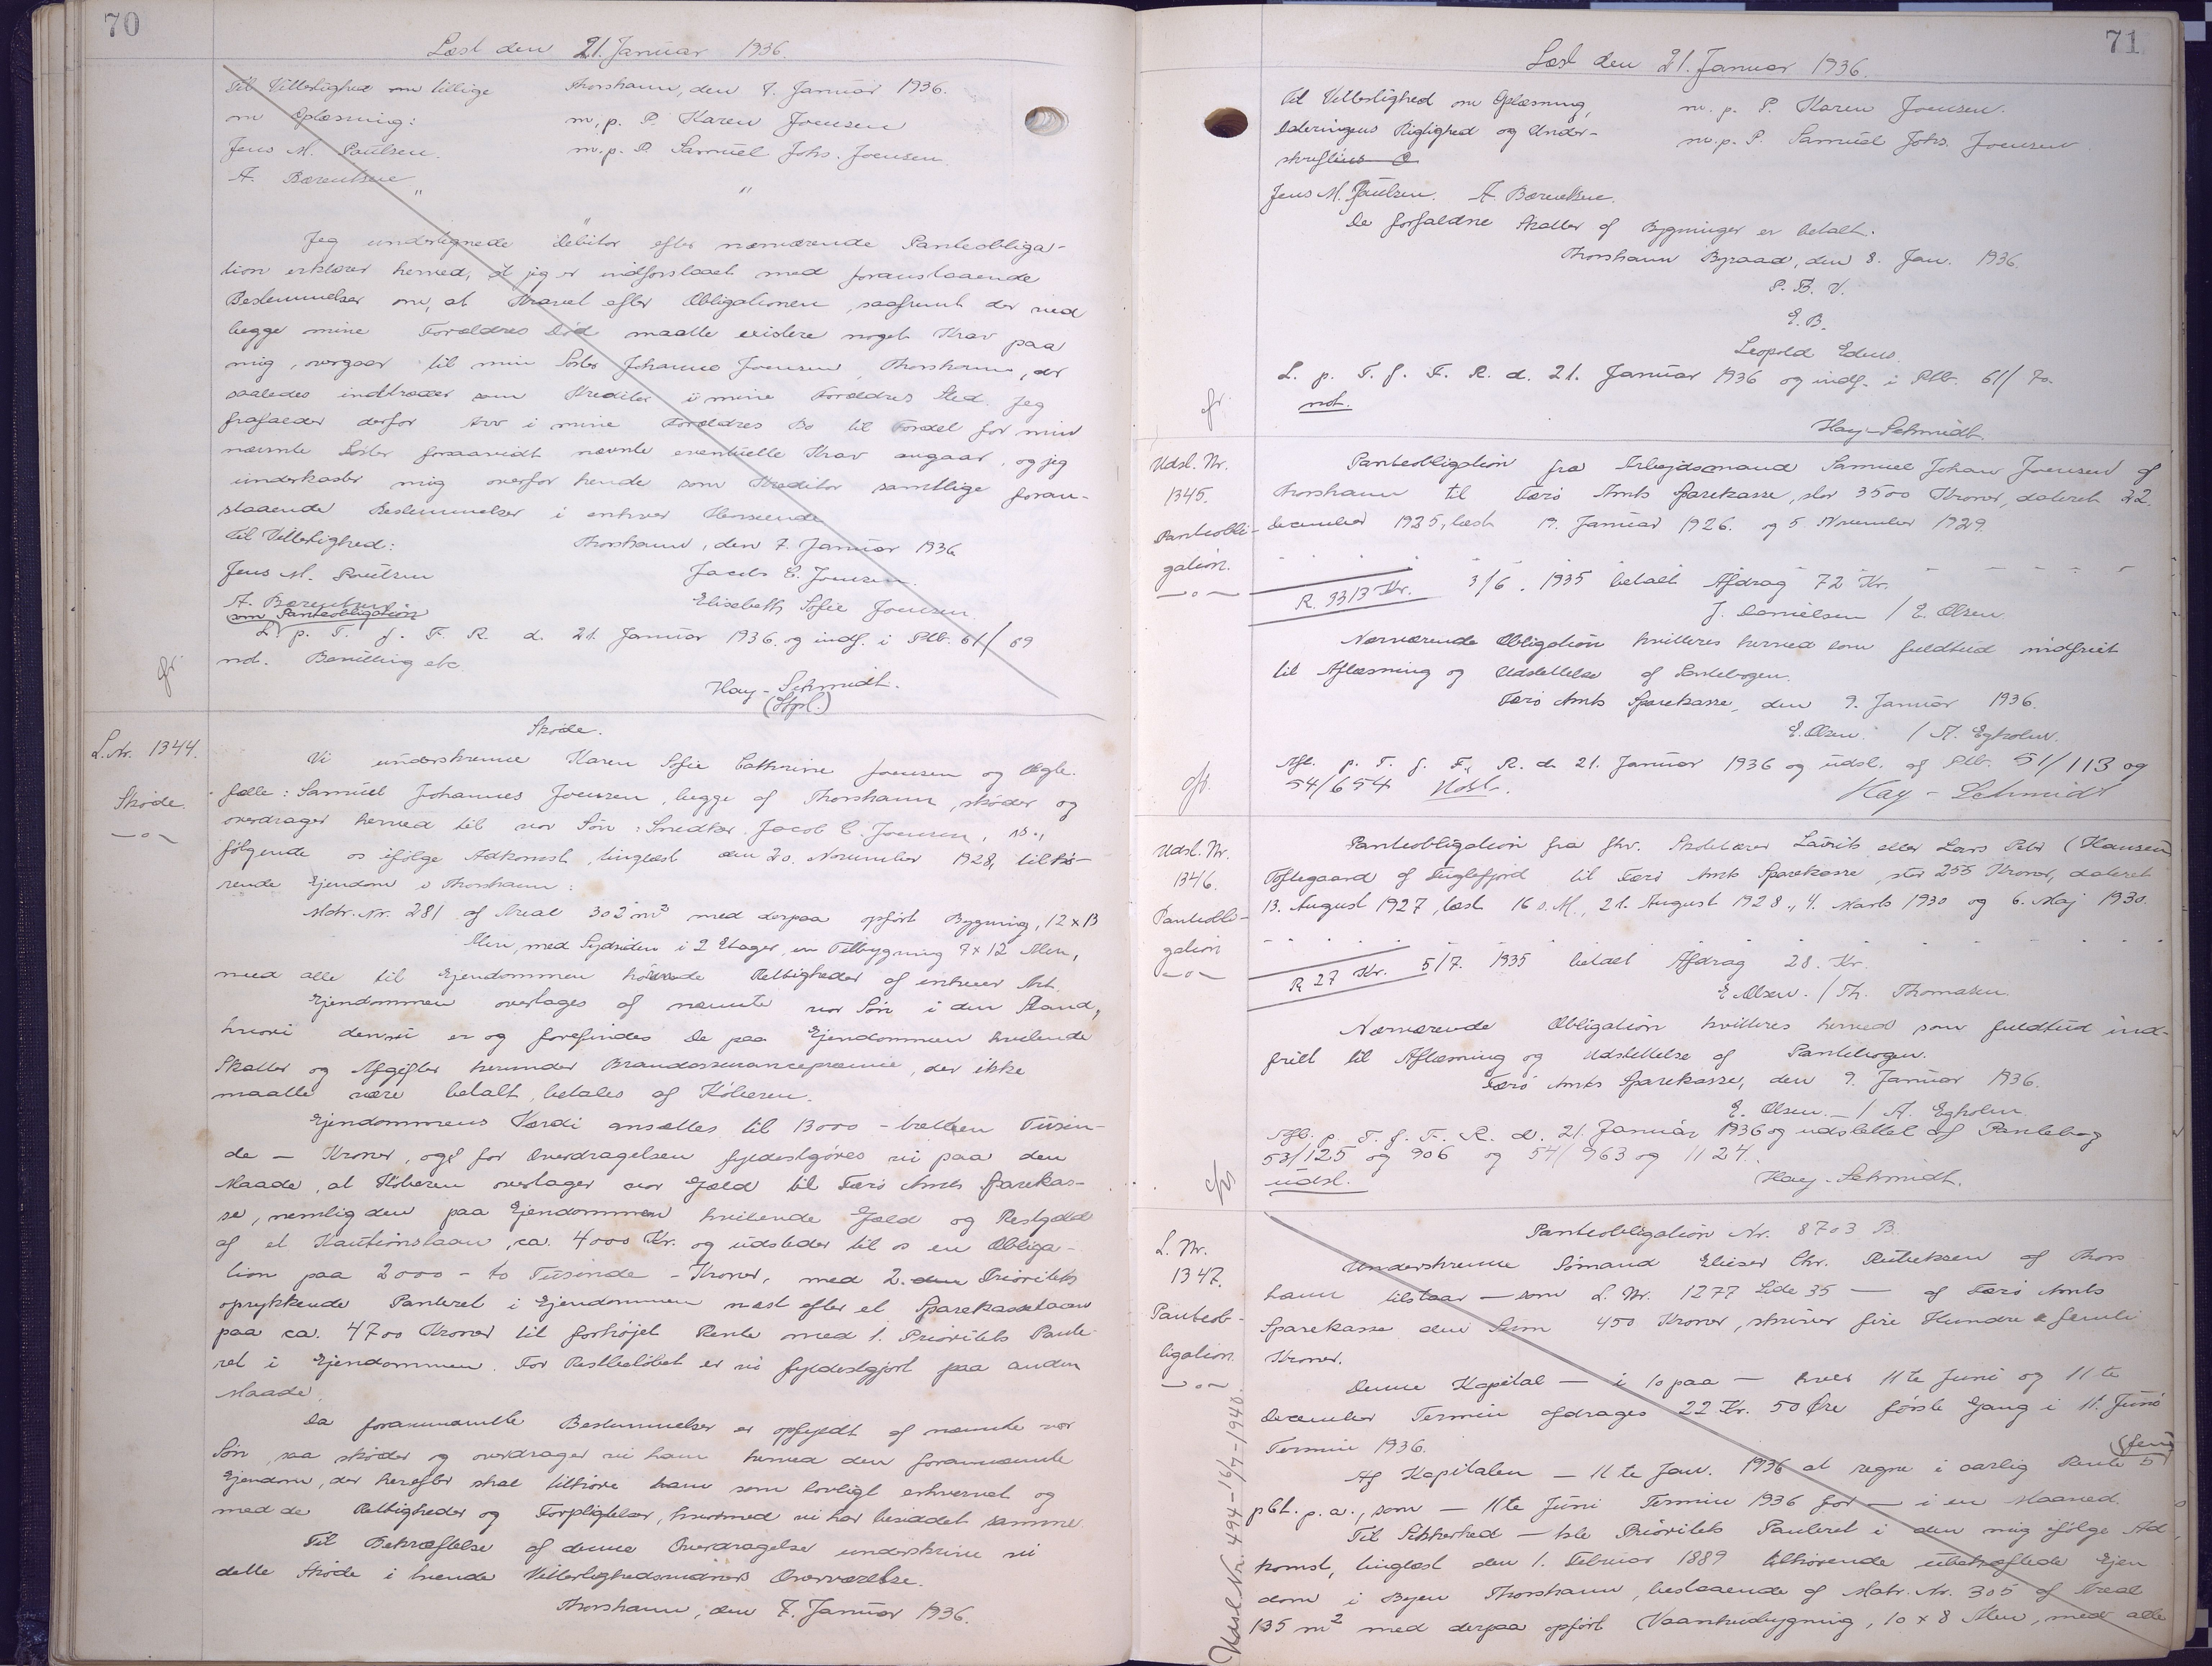 70
Læst den 21. Januar 1936.
Til Vitterlighed om tillige
om Oplæsning:
Jens M. Paulsen.
A. Bærentsen
Thorshavn, den 7. Januar 1936.
m. p. P. Karen Joensen
m. p. P. Samuel Johs. Joensen
Jeg undertegnede Debitor efter nærværende Panteobliga-
tion erklærer herved, at jeg er indforstaaet med foranstaaende
Bestemmelser om, at Kravet efter Obligationen, saafremt der ved
begge mine Forældres Død maatte existere noget Krav paa
mig, overgaar til min Søster Johanne Joensen, Thorshavn, der
saaledes indtræder som Kreditor i mine Forældres Sted. Jeg
frafalder derfor Arv i mine Forældres Bo til Fordel for min
nævnte Søster forsaavidt nævnte eventuelle Krav angaar, og jeg
underkaster mig overfor hende som Kreditor samtlige foran-
staaende Bestemmelser i enhver Henseende
Til Vitterlighed:
Thorshavn, den 7. Januar 1936
Jens M. Poulsen
Jacob C. Joensen.
A. Bærentsen
Elisabeth Sofie Joensen
som Panteobligation
L. p. T. f. F. R. d. 21. Januar 1936 og indf. i Ptb. 61/69
not. Bevilling etc.
Hay-Schmidt.
(Stpl.)
L. Nr. 1344.
Skøde.
Skøde.
Vi underskrevne Karen Sofie Cathrine Joensen og Ægte-
fælle: Samuel Johannes Joensen, begge af Thorshavn, skøder og
overdrager herved til vor Søn: Snedker Jacob C. Joensen, ds.,
følgende os ifølge Adkomst, tinglæst den 20. November 1928, tilhø-
rende Ejendom i Thorshavn:
Matr. Nr. 281 af Areal 302 m² med derpaa opført Bygning, 12 x 13
Alen, med Sydsiden i 2 Etager, en Tilbygning 7 x 12 Alen,
med alle til Ejendommen hørende Rettigheder af enhver Art.
Ejendommen overtages af nævnte vor Søn i den Stand,
hvori denne er og forefindes. De paa Ejendommen hvilende
Skatter og Afgifter herunder Brandassurancepræmie, der ikke
maatte være betalt, betales af Køberen.
Ejendommens Værdi ansættes til 13000 - tretten Tusin-
de - Kroner, og for Overdragelsen fyldestgøres vi paa den
Maade, at Køberen overtager vor Gæld til Færø Amts Sparekas-
se, nemlig den paa Ejendommen hvilende Gæld og Restgæld
af et Kautionslaan, ca. 4000 Kr. og udsteder til os en Obliga-
tion paa 2000 - to Tusinde - Kroner, med 2. den Prioritets
oprykkende Panteret i Ejendommen næst efter et Sparekasselaan
paa ca. 4700 Kroner til forhøjet Rente med 1. Prioritets Pante-
ret i Ejendommen. For Restbeløbet er vi fyldestgjort paa anden
Maade.
Da forannævnte Bestemmelser er opfyldt af nævnte vor
Søn, saa skøder og overdrager vi ham herved den forannævnte
Ejendom, der herefter skal tilhøre ham som lovligt erhvervet og
med de Rettigheder og Forpligtelser, hvormed vi har besiddet samme
Til Bekræftelse af denne Overdragelse underskrive vi
dette Skøde i tvende Vitterlighedsvidners Overværelse.
Thorshavn, den 7. Januar 1936.
71
Læst den 21. Januar 1936.
Til Vitterlighed om Oplæsning,
Dateringens Rigtighed og Under-
skriftens
m. p. P. Karen Joensen.
m. p. P. Samuel Johs. Joensen
Jens M. Paulsen. A. Bærentsen.
De forfaldne Skatter af Bygninger er betalt.
Thorshavn Byraad, den 8. Jan. 1936.
P. B. V.
E. B.
Leopold Edens.
L. p. T. f. F. R. d. 21. Januar 1936 og indf. i Ptb. 61/70.
not.
Hay-Schmidt.
Udsl. Nr.
1345.
Panteobli-
gation.
Panteobligation fra Arbejdsmand Samuel Johan Joensen af
Thorshavn til Færø Amts Sparekasse, stor 3500 Kroner, dateret 22.
December 1925, læst 19. Januar 1926. og 5 November 1929.
R. 3313 Kr. 3/6. 1935 betalt Afdrag 72 Kr.
J. Danielsen / E. Olsen
Nærværende Obligation kvitteres herved som fuldtud indfriet
til Aflæsning og Udslettelse af Pantebogen.
Færø Amts Sparekasse, den 9. Januar 1936.
E. Olsen. / A. Egholm.
Afl. p. T. f. F. R. d. 21. Januar 1936 og udsl. af Ptb. 51/113 og
54/654 Udsl.
Hay-Schmidt
Udsl. Nr.
1346.
Panteobli-
gation
Panteobligation fra fhv. Skolelærer Laurits eller Lars Petr (Hansen
Toftegaard af Fuglefjord til Færø Amts Sparekasse, stor 255 Kroner, dateret
13. August 1927, læst 16 s. M., 21. August 1928., 4. Marts 1930 og 6. Maj 1930.
R 27 Kr. 5/7. 1935 betalt Afdrag 28. Kr.
E. Olsen. / Th. Thomasen.
Nærværende Obligation kvitteres herved som fuldtud ind-
friet til Aflæsning og Udslettelse af Pantebogen.
Færø Amts Sparekasse, den 9. Januar 1936.
E. Olsen. - / A. Egholm
Afl. p. T. f. F. R. d. 21. Januar 1936 og udslettet af Pantebog
53/125 og 906 og 54/963 og 1124.
udsl.
Hay-Schmidt.
L. Nr.
1347.
Panteob-
ligation.
Udsl. Nr. 494-16/7-1940.
Panteobligation Nr. 8703 B.
Underskrevne Sømand Elieser Chr. af Thors
havn tilstaar - som L. Nr. 1277 Side 35 - af Færø Amts
Sparekasse den Sum 450 Kroner, skriver fire Hundre & femti
Kroner.
Denne Kapital - i 10 paa - hver 11te Juni og 11te
December Termin afdrages 22 Kr. 50 Øre første Gang i 11. Juni
Termin 1936.
Af Kapitalen - 11te Jan. 1936 at regne i aarlig Rente 5 (fem)
pCt. p. a., som - 11te Juni Termin 1936 for - i en Maaned.
Til Sikkerhed - 1ste Prioritets Panteret i den mig ifølge Ad
komst, tinglæst den 1. Februar 1889 tilhørende ubehæftede Ejen
dom i Byen Thorshavn, bestaaende af Matr. Nr. 305 af Areal
135 m² med derpaa opført Vaaningsbygning, 10 x 8 Alen, med alle